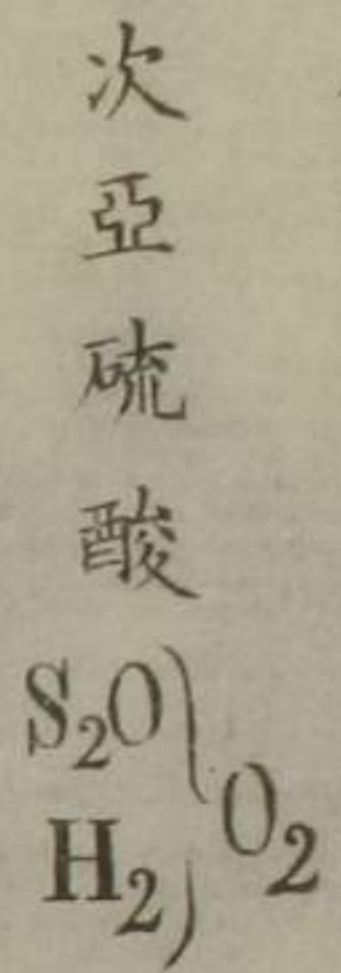 次亞硫酸
S₂O
H₂
O₂